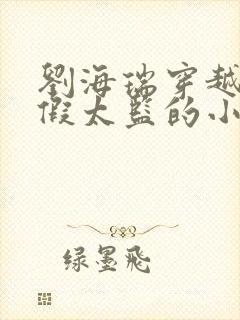 劉海瑞穿越
假太監的小
绿墨飛